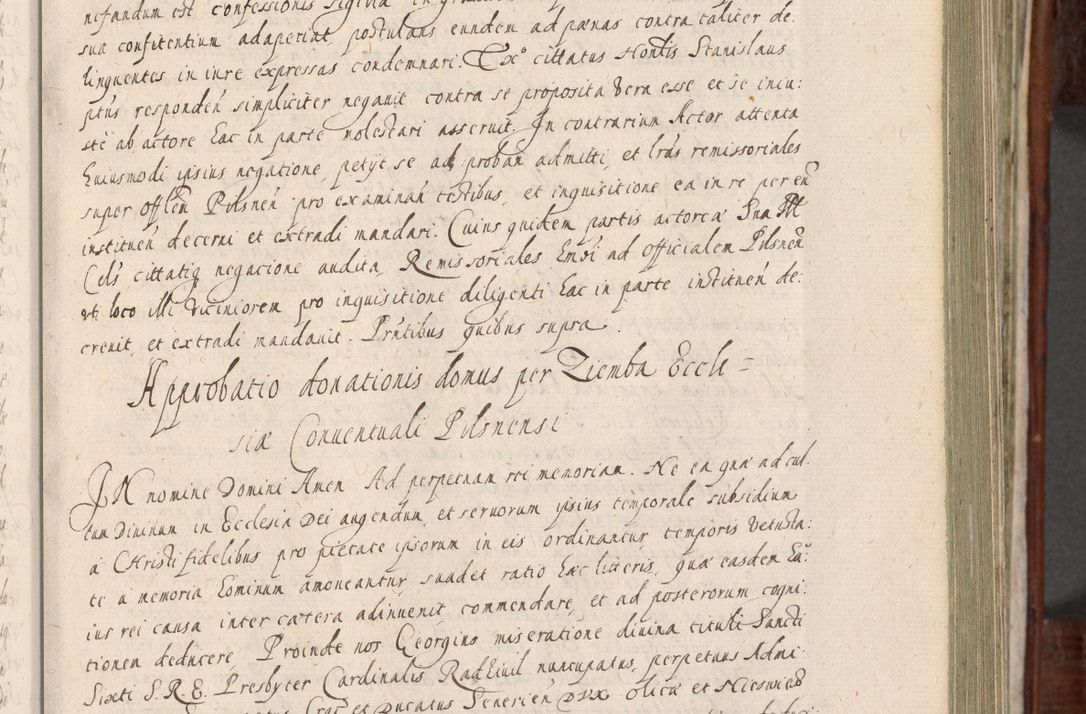 nefandum est confessionis sigilla in
sua confitentium adaperiat, postulans eundem ad pænas contra taliter de:
linquentes in iure expressas condemnari. Ex° cittatus Hondis Stanislaus
ptus responden simpliciter negauit contra se proposita vera esse et se iniu:
stè ab actore hac in parte molestari asseruit. In contrarium Actor attenta
huiusmodi ipsius negatione, petyt se ad proban admitti, et lras remissoriales
super Offlem Pilsnen pro examinan testibus, et inquisitione ea in re per eu
instituen decerni et extradi mandari. Cuius quidem partis actoreæ Sua Ill
Cels cittatiq negacione audita, Remissoriales Emoi ad Officialem Pilsnen
vti loco illi viciniorem pro inquisitione diligenti hac in parte instituen de:
creuit, et extradi mandauit. Prntibus quibus supra.
Approbatio donationis domus per Ziemba Eccle=
siæ Conuentuali Pilsnensi
IN nomine Domini Amen Ad perpetuam rei memoriam. Ne ea quæ ad cul.
tum Diuinum in Ecclesia Dei augendum, et seruorum ipsius temporale subsidium
à CHristi fidelibus pro pietate ipsorum in eis ordinantur temporis vetusta:
te à memoria hominum amoueantur suadet ratio hæc litteris, quæ easdem ha:
ius rei causa inter cætera adinuenit commendare, et ad posterorum cogni:
tionem deducere, Proinde nos Georgius miseratione diuina tituli Sancti
Sixti S.R.E. Presbyter Cardinalis Radziuil nuncupatus, perpetuus Admi:
Crac et Ducatus Seuerien DVX Olicæ et Nieswies